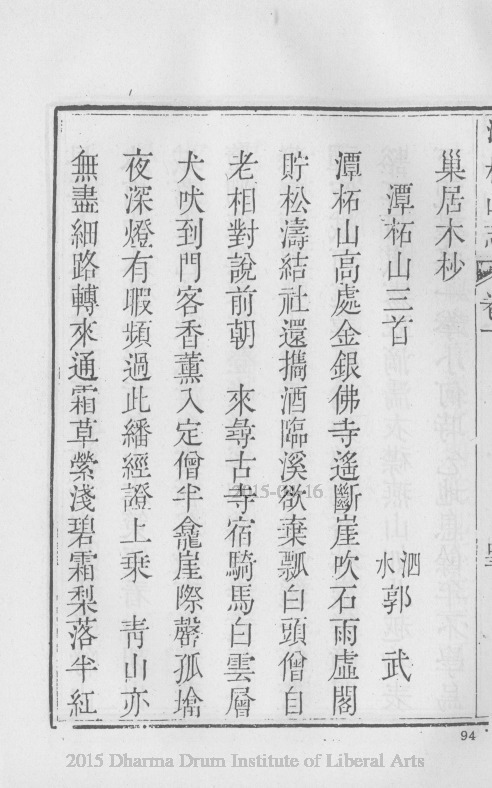 巢居木杪
潭柘山三首
泗水郭武
潭柘山高處金銀佛寺遙斷崖吹石雨虛閣
貯松濤結社還攜酒臨溪欲棄瓢白頭僧自
老相對說前朝　來尋古寺宿騎馬白雲層
犬吠到門客香薰入定僧半龕崖際磬孤塔
夜深燈有暇頻過此繙經證上乗　青山亦
無盡細路轉來通霜草縈淺碧霜梨落半紅
94
2015-04-16
2015 Dharma Drum Institute of Liberal Arts